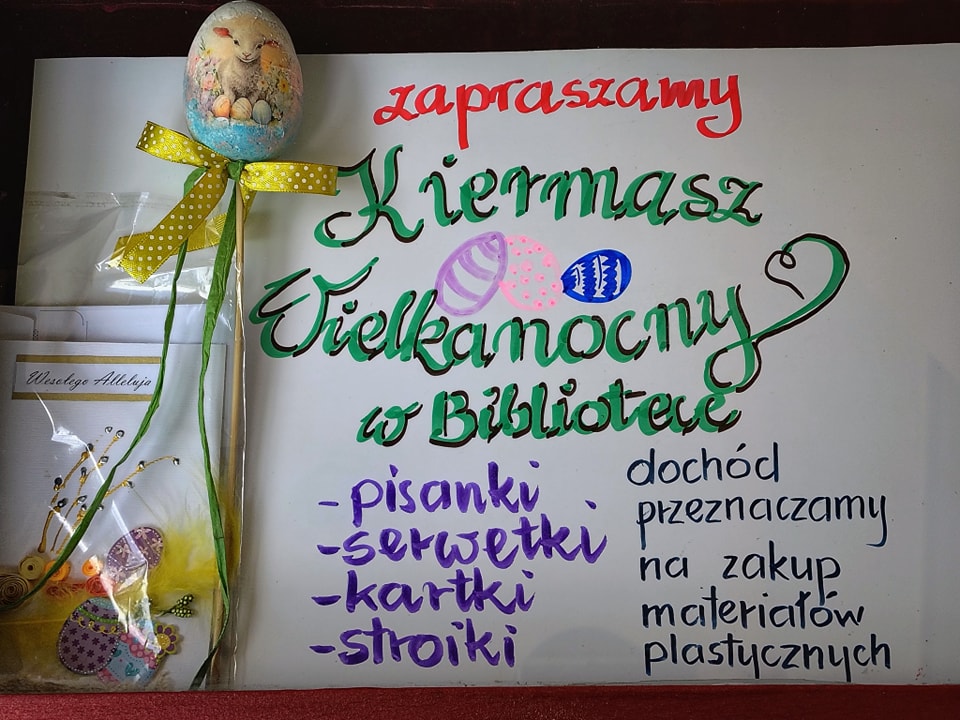 zapraszamy
Kiermasz
Wielkanocny
w Bibliotece
- pisanki
- serwetki
- kartki
- stroiki
dochód
przeznaczamy
na zakup
materiałów
plastycznych
Wesołego Alleluja